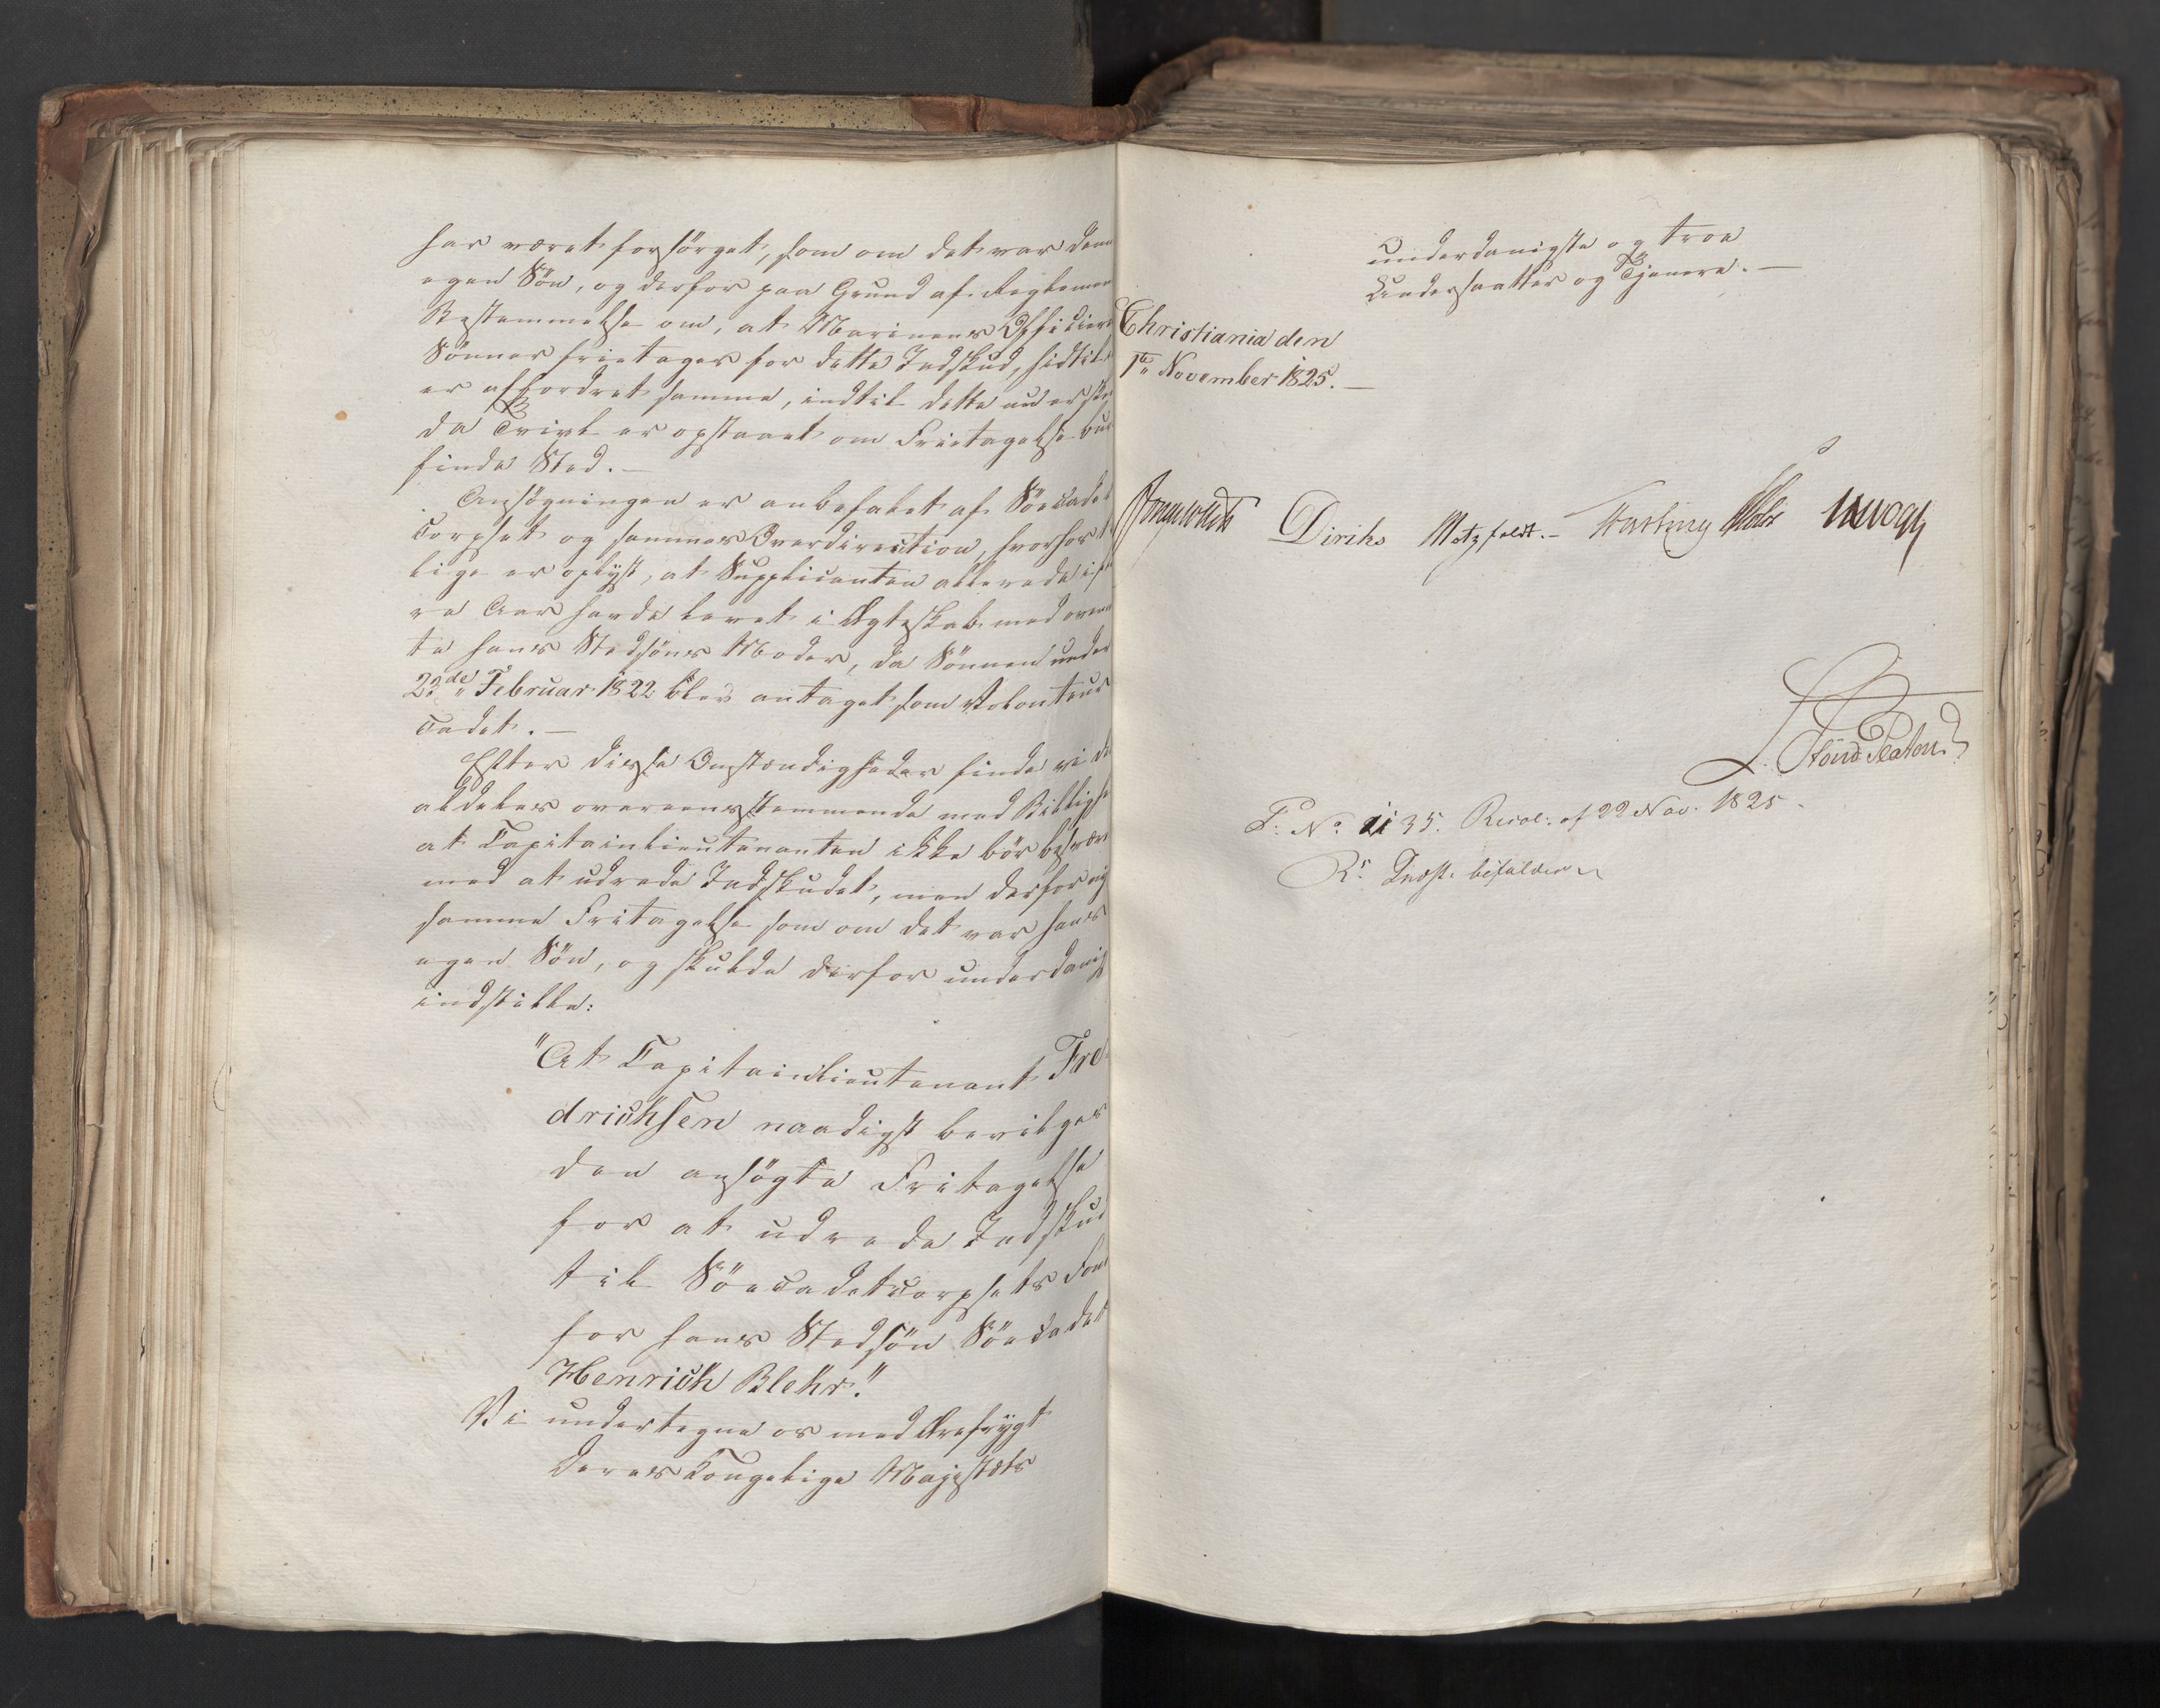 har været forsörget, som om det var den
egen Sön, og derfor paa Grund af Reglemen
Bestemmelse om, at Marinens Officiers
Sönner frietages for dette Indskud, hidtil
er affordret samme, indtil dette nu er
da Tvivl er opstaaet om Frietagelse bur
finde Sted. —
Ansögningen er anbefalet af Söecadet
Corpset og sammes Overdirection, hvorhos
lige er oplyst, at Supplicanten allerede i
re Aar havde levet i Ægteskab med oven
te hans Stedsöns Moder, da Sönnen under
23de Februar 1822 blev antaget som Volonteur
Cadet. —
Efter disse Omstændigheder finde vi de
aldeles overeensstemmende med Billigh
at Capitainlieutenanten ikke bör besvære
med at udrede Indskudet, men derfor
samme Fritagelse som om det var hans
egen Sön, og skulde derfor underdanigst
indstille:
"At Capitainlieutenant Fre
drichsen naadigst bevilges
den ansögte Fritagelse
for at udrede Indskud
til Söecadetcorpsets Fond
for hans Stedsön Söecadet
Henrich Blehr."
Vi undertegne os med Ærefrygt
Deres Kongelige Majestæts
underdanigste og troe
Undersaatter og Tjenere. —
Christiania den
1te November 1825. —
Diriks Motzfeldt. — Fasting
F: No 1135. Resol: af 22 Nov. 1825.
Rs Indst. bifaldes